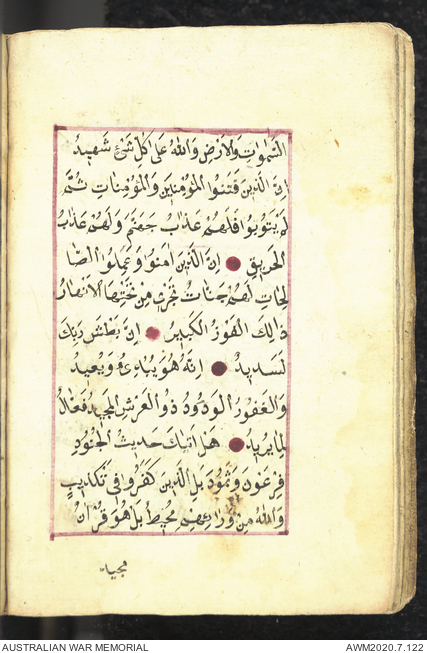 السَّمٰوَاتِ وَالْاَرْضِ وَاللّٰهُ عَلٰى كُلِّ شَیْءٍ شَهِيدٌ
اِنَّ الَّذِينَ فَتَنُوا الْمُؤْمِنِينَ وَالْمُؤْمِنَاتِ ثُمَّ
لَمْ يَتُوبُوا فَلَهُمْ عَذَابُ جَهَنَّمَ وَلَهُمْ عَذَابُ
الْحَرِيقِ اِنَّ الَّذِينَ اٰمَنُوا وَعَمِلُوا الصَّا
لِحَاتِ لَهُمْ جَنَّاتٌ تَجْرِي مِنْ تَحْتِهَا الْاَنْهَارُ
ذَالِكَ الْفَوْزُ الْكَبِيرُ اِنَّ بَطْشَ رَبِّكَ
لَشَدِيدٌ اِنَّهُ هُوَ يُبْدِئُ وَيُعِيدُ
وَالْغَفُورُ الْوَدُودُ ذُوالْعَرْشِ الْمَجِيدُ فَعَّالٌ
لِمَا يُرِيدُ هَلْ اَتٰيكَ حَدِيثُ الْجُنُودِ
فِرْعَوْنَ وَثَمُودَ بَلِ الَّذِينَ كَفَرُوا فِي تَكْذِيبٍ
وَاللّٰهُ مِنْ وَرَائِهِمْ مُحِيطٌ بَلْ هُوَ قُرْاٰنٌ
مجيد
AUSTRALIAN WAR MEMORIAL
AWM2020.7.122